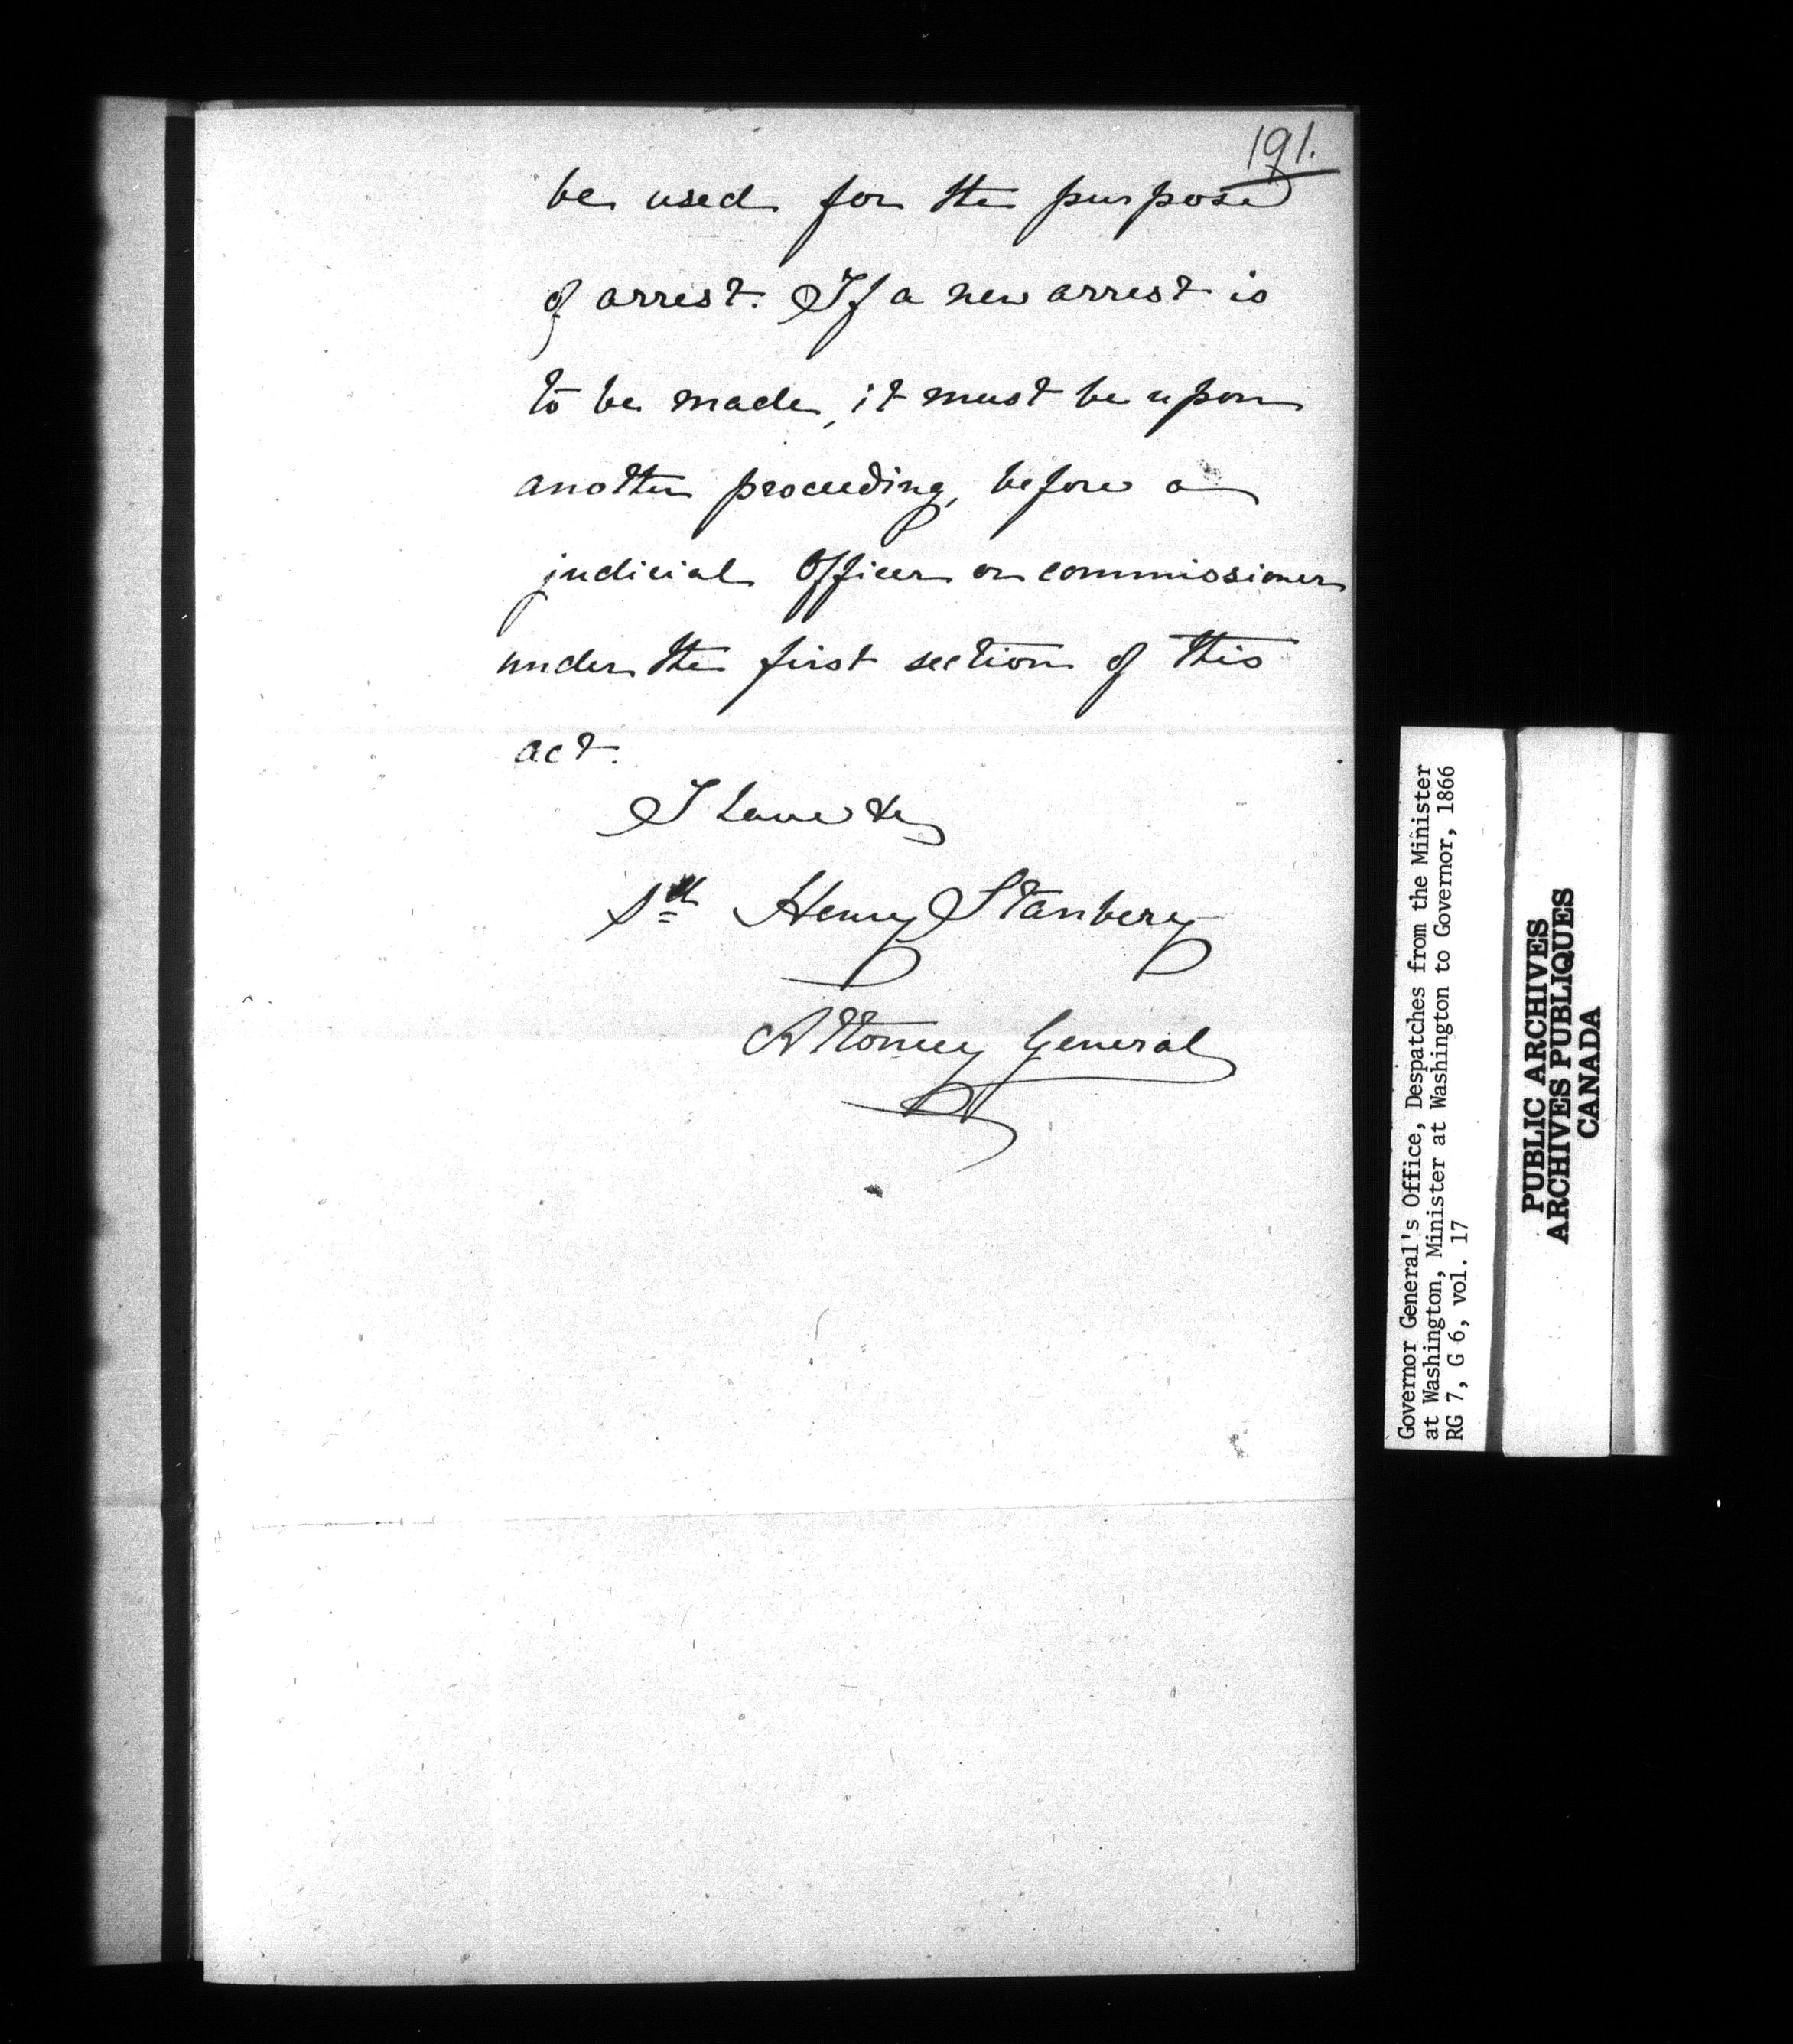 191.
be used for the purpose
of arrest. If a new arrest is
to be made, it must be upon
another proceeding, before a
judicial Officer or commissioner
under the first section of this
act.
I have &c
Henry Stanbery
Attorney General
Governor General's Office, Despatches from the Minister
at Washington, Minister at Washington to Governor, 1866
RG 7, G 6, vol. 17
PUBLIC ARCHIVES
ARCHIVES PUBLIQUES
CANADA